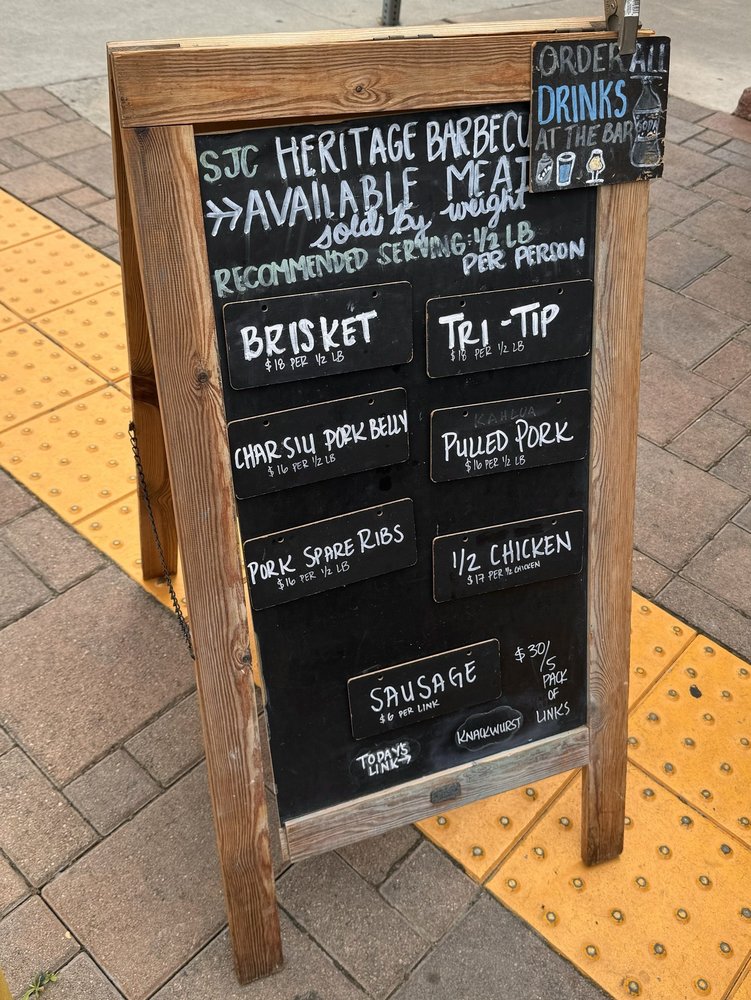 ORDER ALL
DRINKS
AT THE BAR
SODA
SJC HERITAGE BARBECU
AVAILABLE MEAT
sold by weight
RECOMMENDED SERVING: 1/2 LB
PER PERSON
BRISKET
$18 PER 1/2 LB
TRI-TIP
$18 PER 1/2 LB
CHAR SIU PORK BELLY
$16 PER 1/2 LB
KAHLUA
PULLED PORK
$16 PER 1/2 LB
PORK SPARE RIBS
$16 PER 1/2 LB
1/2 CHICKEN
$17 PER 1/2 CHICKEN
SAUSAGE
$6 PER LINK
$30/5
PACK
OF
LINKS
KNACKWURST
TODAYS
LINK→